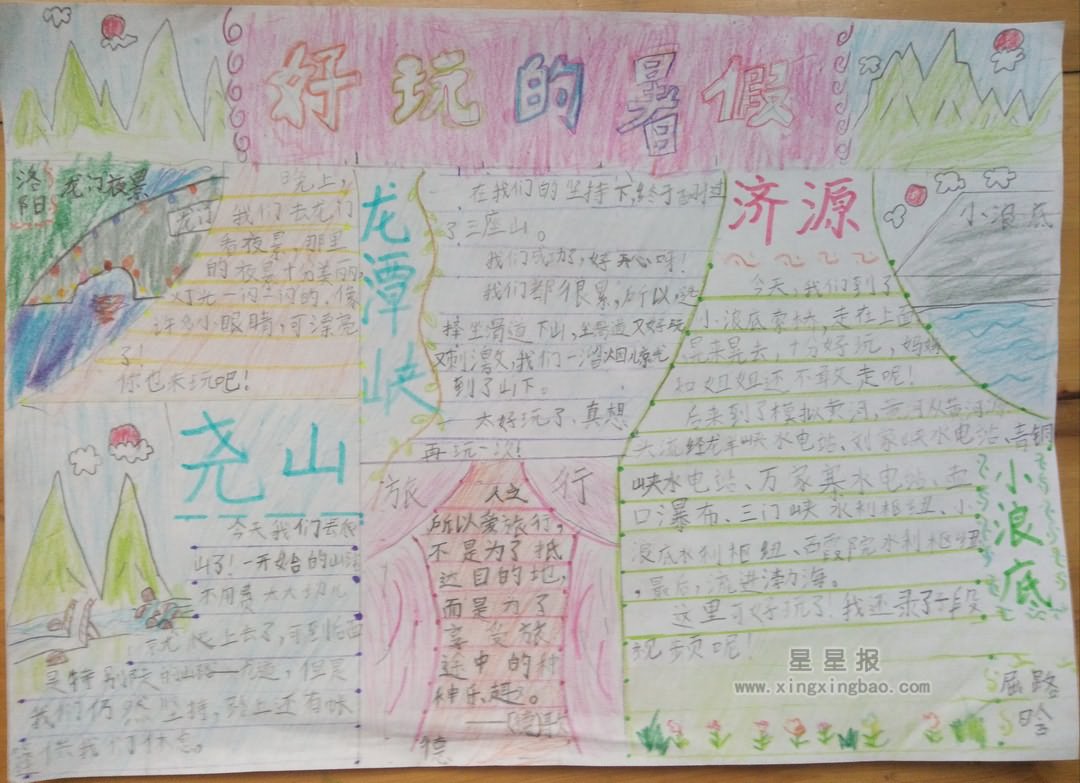 好玩的暑假
洛阳 龙门夜景
龙门
晚上，
我们去龙门
看夜景，那里
的夜景十分美丽，
灯光一闪一闪的，像
许多小眼睛，可漂亮
了！
你也来玩吧！
尧山
今天我们去尧
山了！一开始的山路
不用费大大功儿
就爬上去了，可到后面
是特别陡的山路——九道，但是
我们仍然坚持，路上还有
提供我们休息。
龙潭峡
在我们的坚持下，终于翻过
了三座山。
我们成功了，好开心呀！
我们都很累，所以，选
择坐滑道下山，坐滑道又好玩
又刺激，我们一溜烟
到了山下。
太好玩了，真想
再玩一次！
旅行
人之
所以爱旅行，
不是为了抵
达目的地，
而是为了
享受旅
途中的种
种乐趣。
——[德]歌
德
济源
小浪底
今天，我们到了
小浪底索桥，走在上面
晃来晃去，十分好玩，妈妈
和姐姐还不敢走呢！
后来到了模拟黄河，黄河从黄河源
头流经龙羊峡水电站、刘家峡水电站、青铜
峡水电站、万家寨水电站、壶
口瀑布、三门峡水利枢纽、小
浪底水利枢纽、西霞院水利枢纽
，最后，流进渤海。
这里可好玩了！我还录了一段
视频呢！
小浪底
屈路
晗
星星报
www.xingxingbao.com